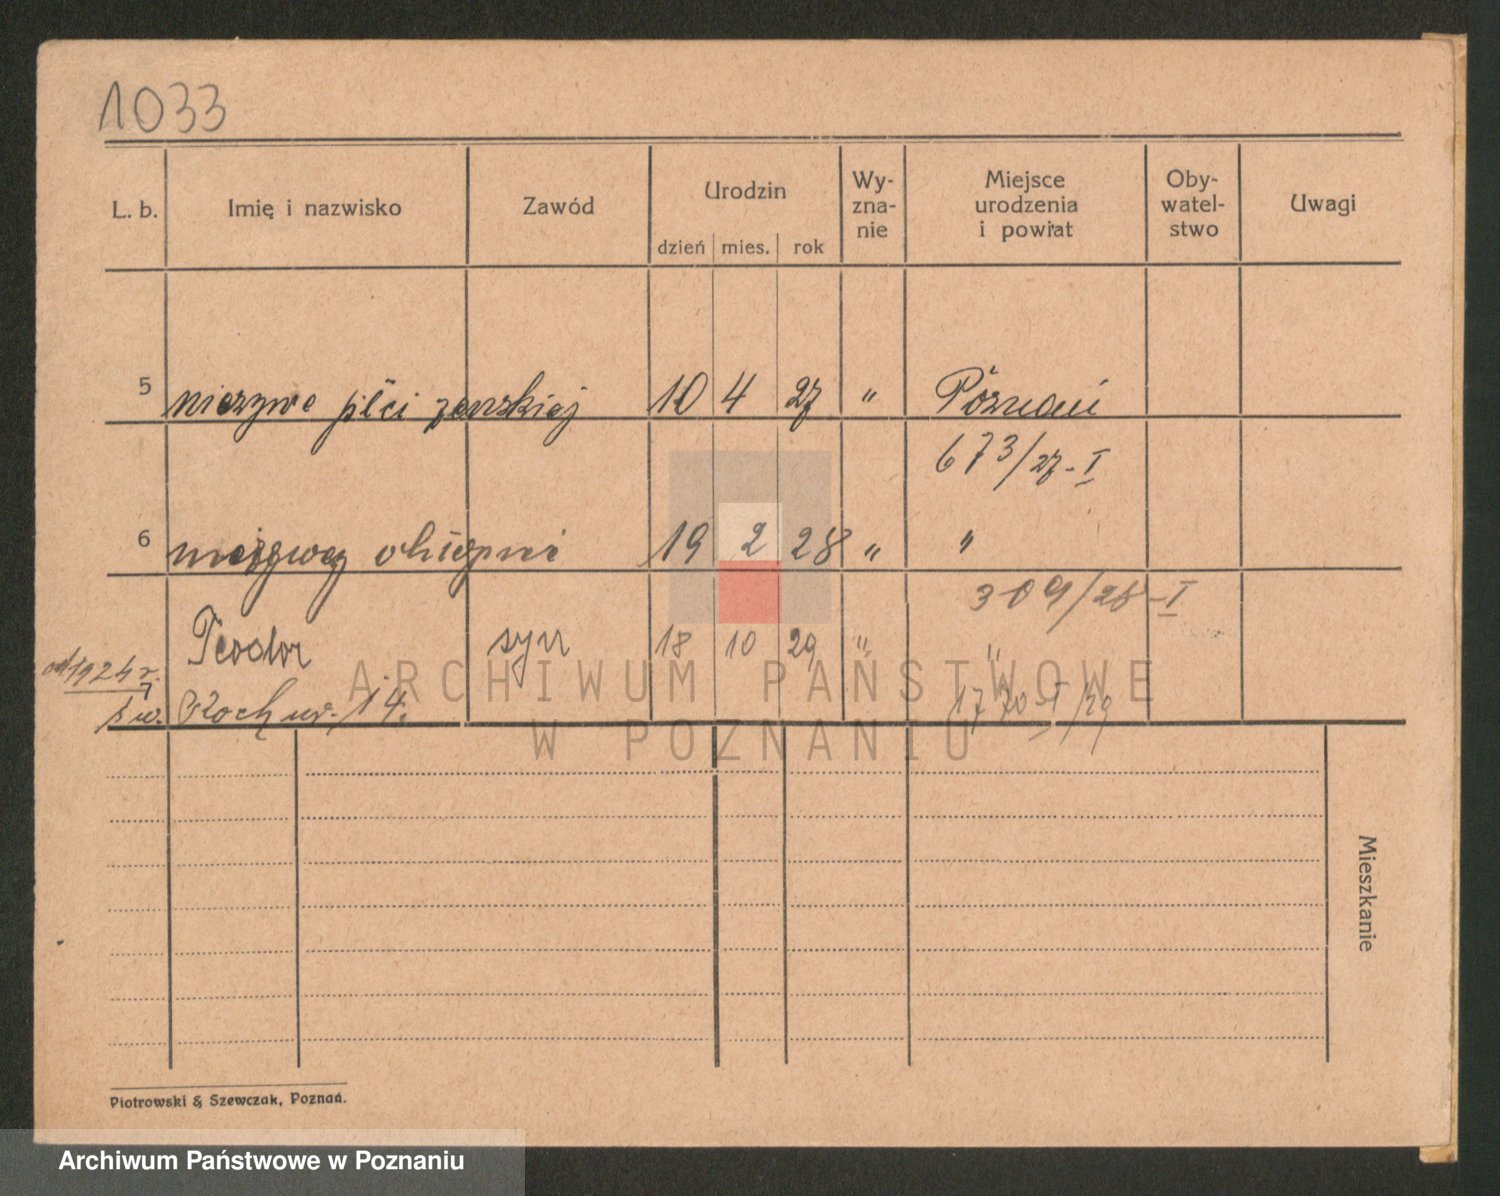 1033
L. b. Imię i nazwisko Zawód Urodzin Wy-zna-nie Miejsce urodzenia i powiat Oby-watel-stwo Uwagi
dzień mies. rok
5 nieżywe płci żeńskiej 10 4 27 " Poznań
673/27-I
6 nieżywy chłopiec 19 2 28 " "
309/28-I
Teodor syn 18 10 29 " "
od 1924 r.
św. Roch nr. 14. 1770-I/29
ARCHIWUM PAŃSTWOWE
W POZNANIU
Mieszkanie
Piotrowski & Szewczak, Poznań.
Archiwum Państwowe w Poznaniu